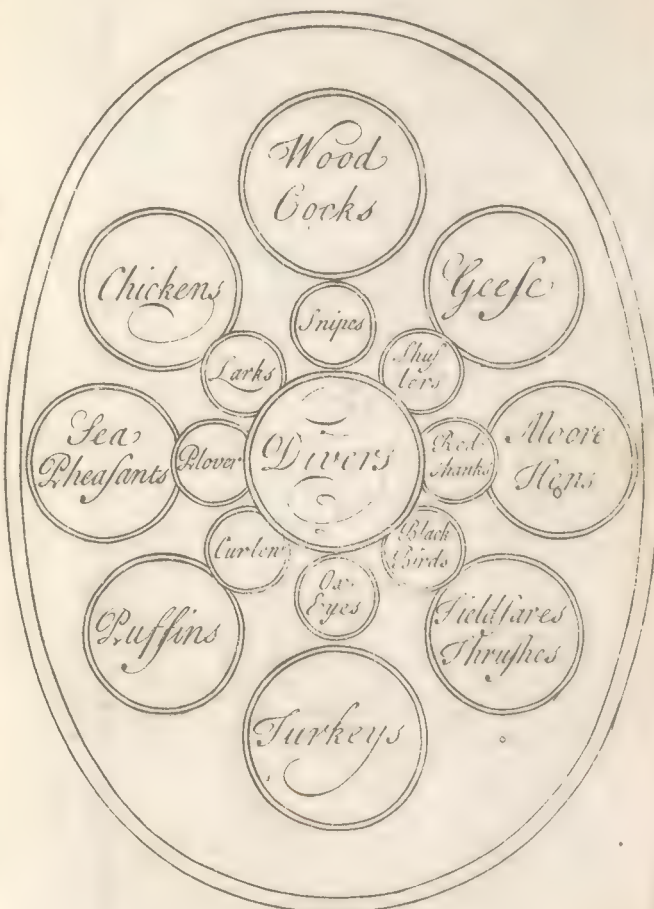 Wood
Cocks
Chickens
Geeſe
Snipes
Larks
Shuf
lers
Sea
Pheaſants
Plover
Divers
Red
ſhanks
Moore
Hens
Curlew
Black
Birds
Ox
Eyes
Puffins
Fieldfares
Thruſhes
Turkeys